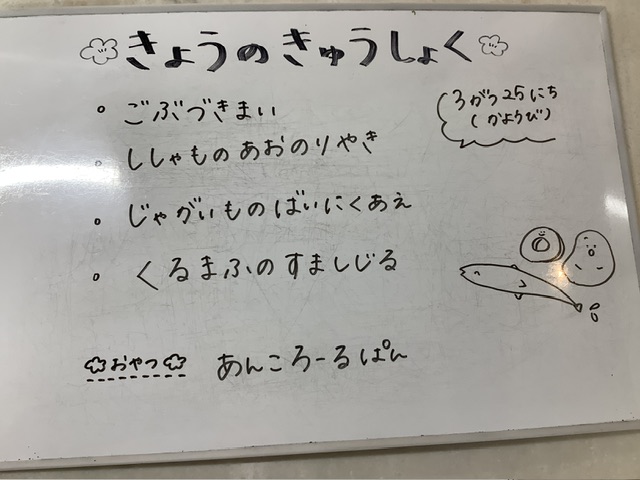 きょうのきゅうしょく
3がつ25にち
(かようび)
・ごぶづきまい
・ししゃものあおのりやき
・じゃがいものばいにくあえ
・くるまふのすましじる
おやつ
あんころーるぱん